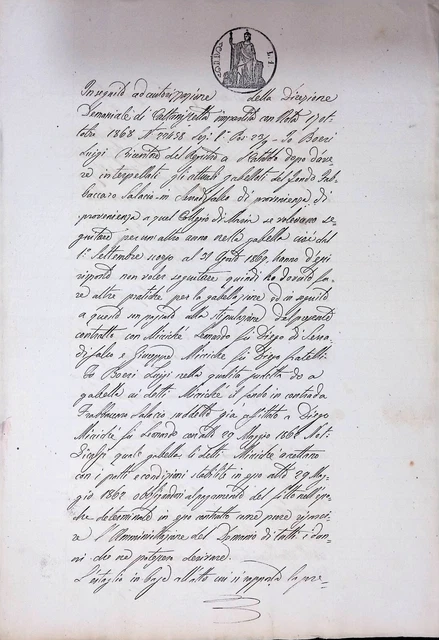 In seguito ad autorizzazione della Direzione
Demaniale di Caltanissetta impartita con Nota 17 ot-
tobre 1868 N. 20458 Sez. 1ª Pos. 23/9 - Io Boeri
Luigi Ricevitore del Registro a Cataldo dopo d'ave-
re interpellati gli attuali gabelloti del fondo Trab-
baccaro Salacio in Serradifalco di provenienza di
provenienza a quel Collegio di Maria se volevano se-
guitare per un altro anno nella gabella cioè dal
1° Settembre scorso al 31 Agosto 1869, hanno d'essi
risposto non voler seguitare quindi ho dovuto fa-
re altre pratiche per la gabellazione ed in seguito
a queste son passato alla stipulazione del presente
contratto con Miccichè Leonardo fu Diego di Serra-
difalco e Giuseppe Miccichè fu Diego fratelli
Io Boeri Luigi nella qualità predetta do a
gabella ai detti Miccichè il fondo in contrada
Trabbaccaro Salacio suddetto già affittato a Diego
Miccichè fu Leonardo con atto 29 Maggio 1862 Not.
quale gabella li detti Miccichè accettano
con i patti e condizioni stabilite in esso atto 29 Mag-
gio 1862 obbligandosi al pagamento del fitto nelle epo-
che determinate in esso contratto come pure
re l'Amministrazione del Demanio di tutti i dan-
ni che ne potessero derivare.
L'estaglio in base all'atto cui si rapporta la pre-